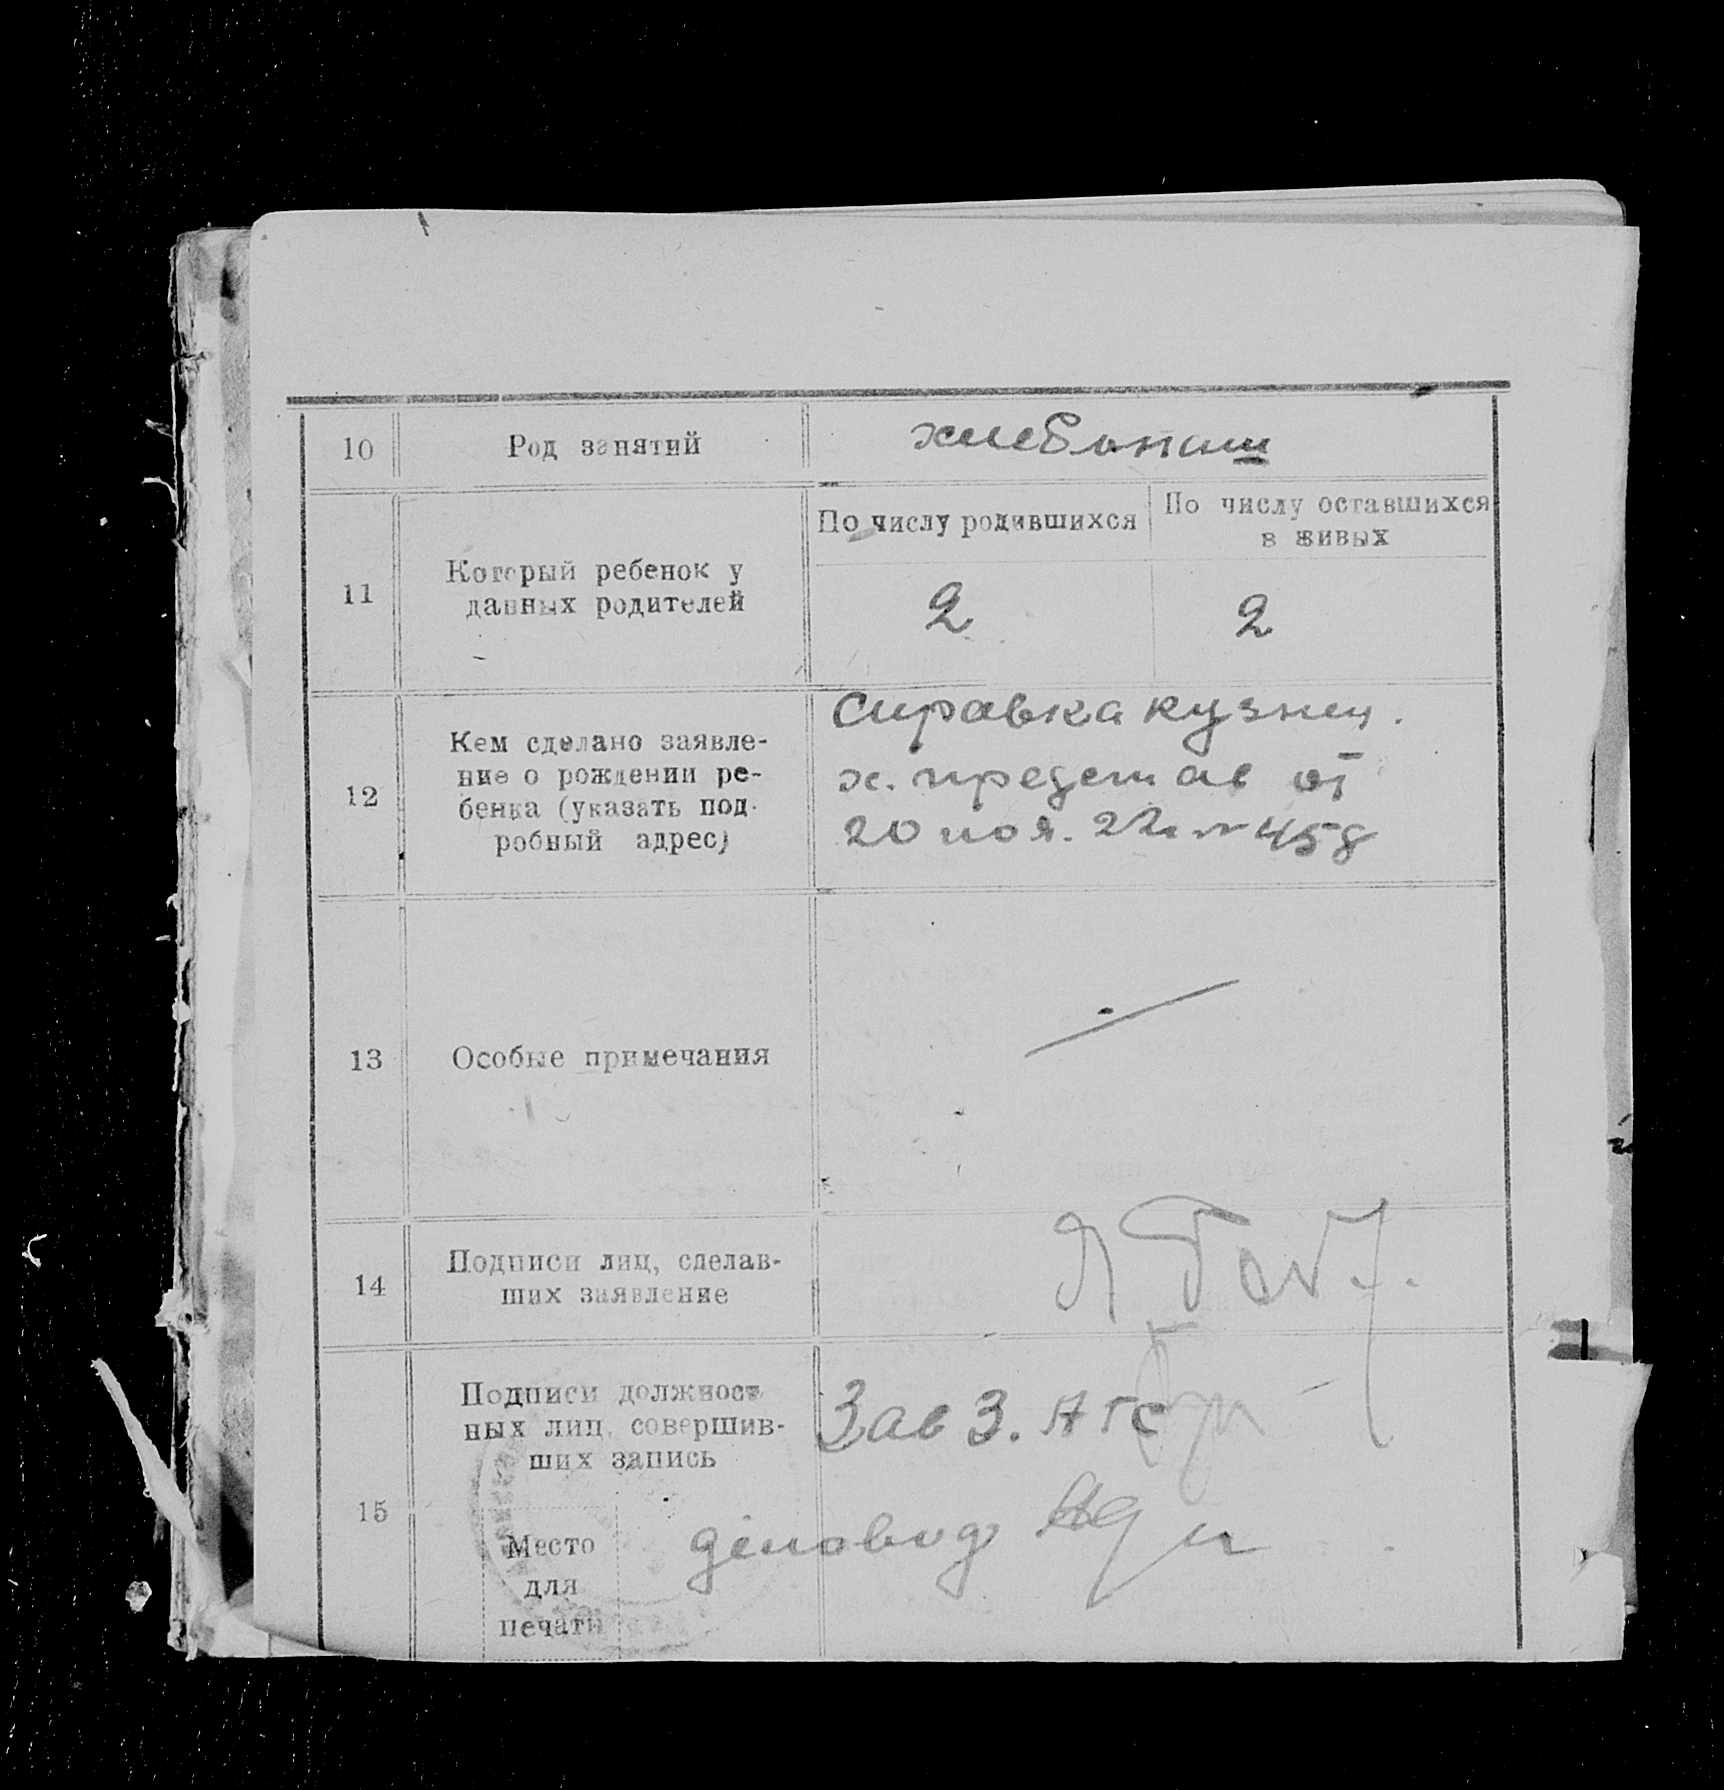 10
Род занятий
хлебопаш
11
Который ребенок у
данных родителей
По числу родившихся
По числу оставшихся
в живых
2
2
12
Кем сделано заявле-
ние о рождении ре-
бенка (указать под-
робный адрес)
Справка кузнец.
х. председав от
20 ноя. 22г № 458
13
Особые примечания
14
Подписи лиц, сделав-
ших заявление
15
Подписи должност
ных лиц, совершив-
ших запись
Зав З. АГС
Место
для
печати
деловод